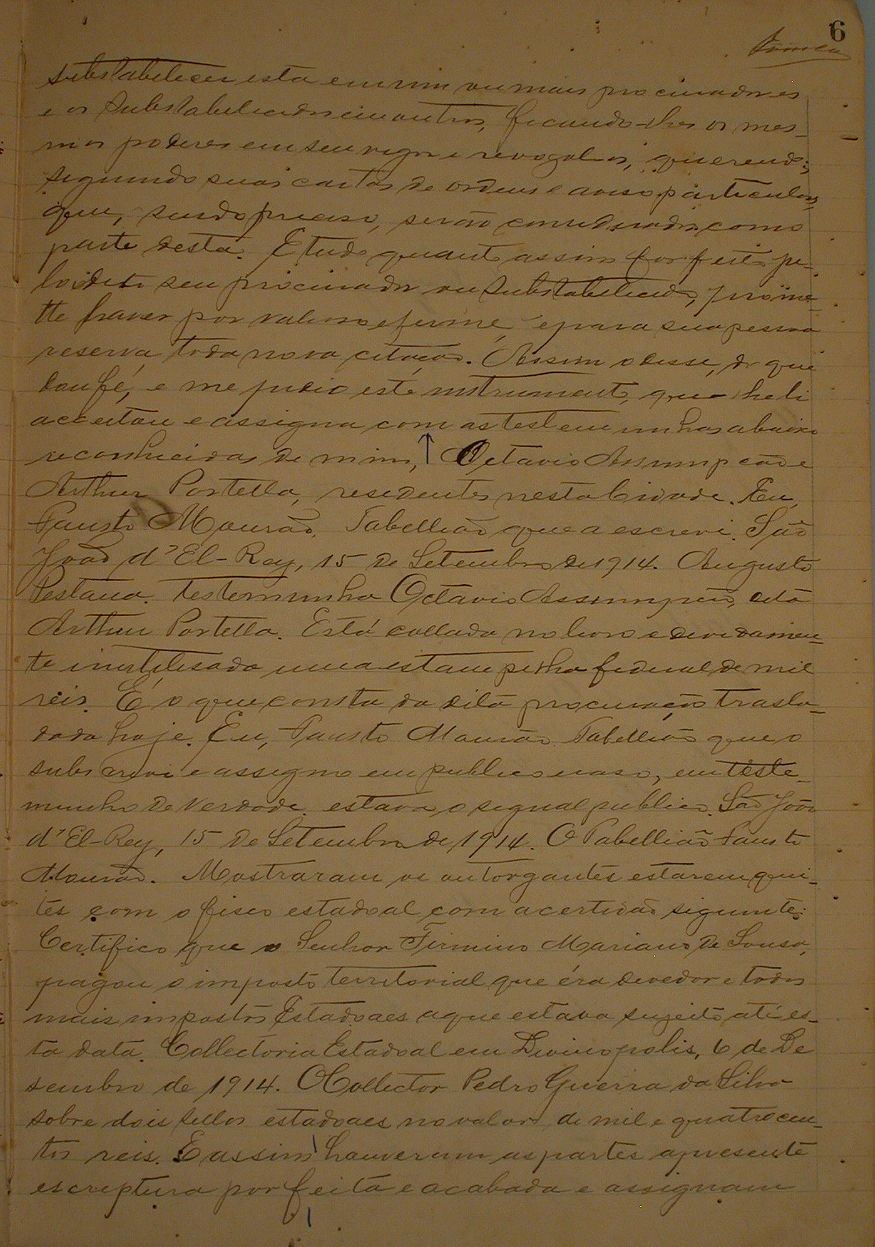 6
substabelecer esta em um ou mais procuradores
e os substabelecidos em outros, ficando-lhes os mes-
mos poderes em seu vigor e revogal-os, querendo,
segundo suas cartas de ordens e aviso particular,
que, sendo preciso, serão considerados como
parte desta. E tudo quanto assim for feito pe-
lo dito seu procurador ou substabelecido, prome-
tte haver por valioso e firme e para sua pessoa
reserva toda nova citação. Assim o disse, do que
dou fé, e me pedio este instrumento, que lhe li
acceitou e assigna com as testemunhas abaixo
reconhecidas de mim, Octavio Assumpção e
Arthur Portella, residentes nesta Cidade. Eu,
Fausto Mourão, Tabellião que a escrevi. São
João d'El-Rey, 15 de Setembro de 1914. Augusto
Pestana. Testemunha Octavio Assumpção, dita
Arthur Portella. Está collada no livro e devidamen-
te inutilisada uma estampilha federal de mil
reis. É o que consta da dita procuração trasla-
dada hoje. Eu, Fausto Mourão Tabellião que o
subscrevi e assigno em publico e raso, em teste-
munho de verdade, estava o signal publico. São João
d'El-Rey, 15 de Setembro de 1914. O Tabellião Fausto
Mourão. Mostraram os outorgantes estarem qui-
tes com o fisco estadoal com a certidão seguinte:
Certifico que o Senhor Firmino Mariano de Sousa,
pagou o imposto territorial que éra devedor e todos
mais impostos Estadoaes a que estava sugeito até es-
ta data. Collectoria Estadoal em Divinopolis, 6 de De
sembro de 1914. O Collector Pedro Guerra da Silva
sobre dois sellos estadoaes no valor de mil e quatrocen-
tos reis. E assim houveram as partes a presente
escriptura por feita e acabada e assignam